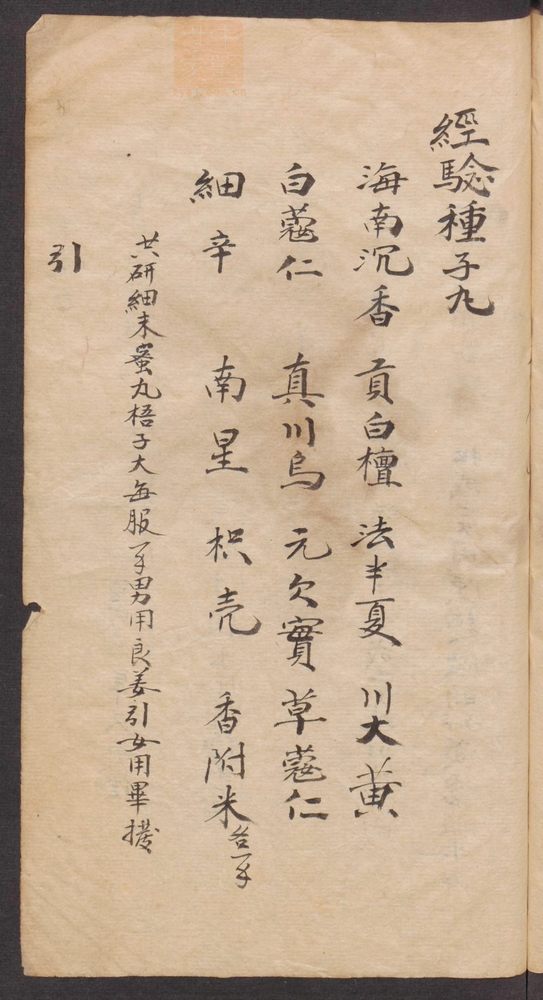 經驗種子丸
海南沉香 貢白檀 法半夏 川大黄
白蔻仁 真川烏 元欠實 草蔻仁
細辛 南星 枳壳 香附米 各一子
共研細末蜜丸梧子大每服一子男用良姜引女用畢撥
引